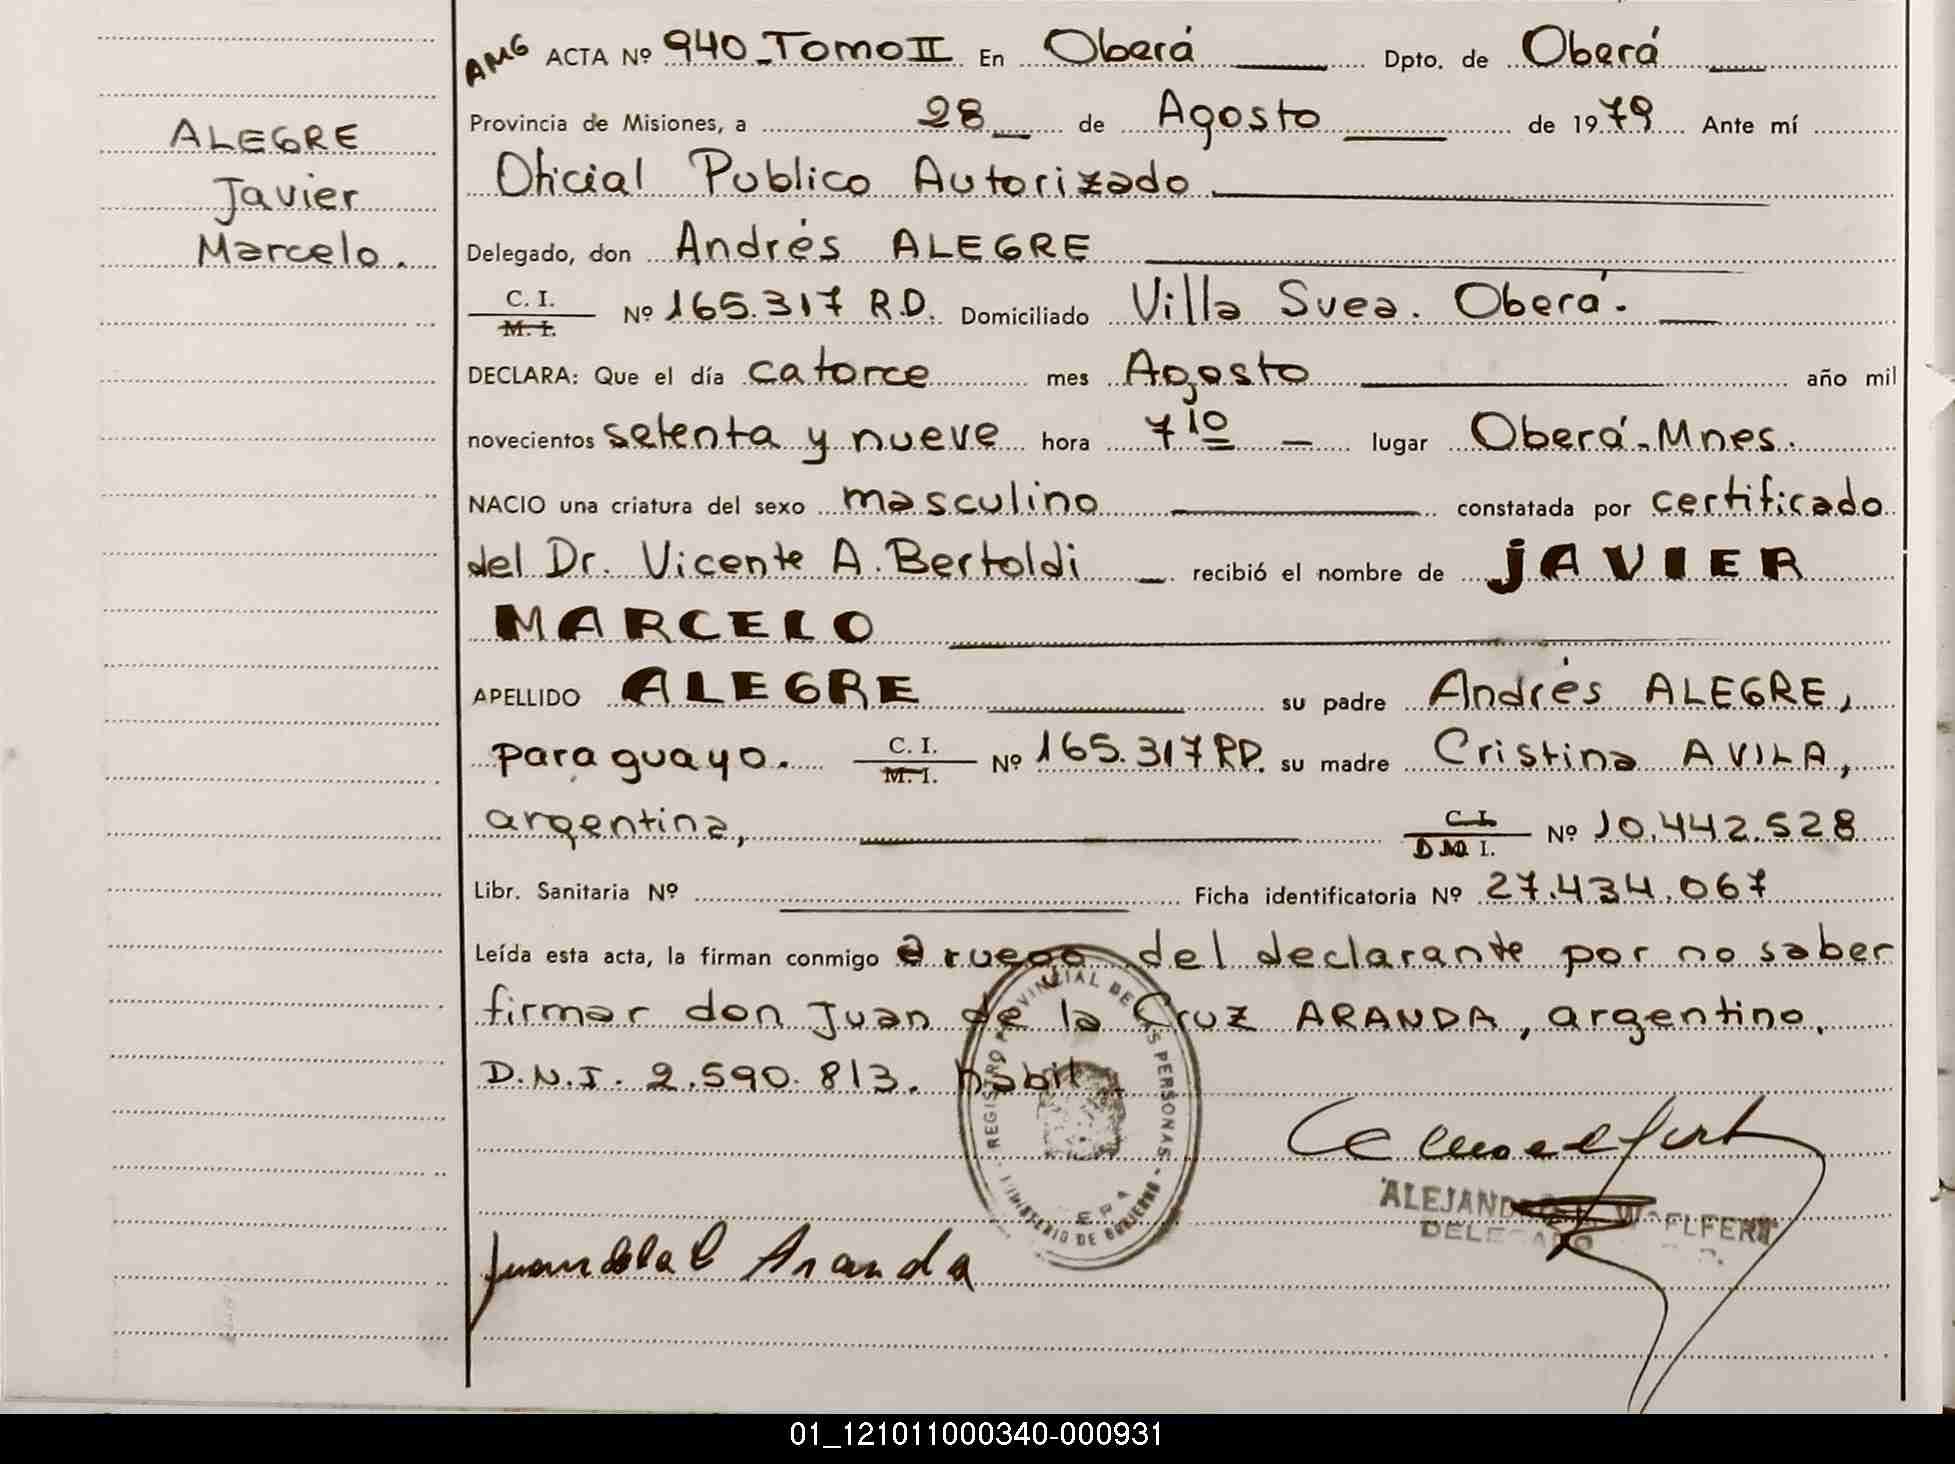 AMG ACTA Nº 940_TOMO II En Oberá Dpto. de Oberá
Provincia de Misiones, a 28 de Agosto de 1979 Ante mí
Oficial Publico Autorizado
ALEGRE
Javier
Marcelo.
Delegado, don Andrés ALEGRE
C. I.
M. I. Nº 165.317 R.D. Domiciliado Villa Svea. Oberá.
DECLARA: Que el día catorce mes Agosto año mil
novecientos setenta y nueve hora 7 10 lugar Oberá-Mnes.
NACIO una criatura del sexo masculino constatada por certificado
del Dr. Vicente A. Bertoldi recibió el nombre de JAVIER
MARCELO
APELLIDO ALEGRE su padre Andrés ALEGRE,
paraguayo. C. I.
M. I. Nº 165.317 RD. su madre Cristina AVILA,
argentina, C. I.
D.N. I. Nº 10.442.528
Libr. Sanitaria Nº Ficha identificatoria Nº 27.434.067
Leída esta acta, la firman conmigo a ruego del declarante por no saber
firmar don Juan de la Cruz ARANDA, argentino,
D.N.I. 2.590.813. habil.
REGISTRO PROVINCIAL DE LAS PERSONAS
MINISTERIO DE GOBIERNO
ALEJANDRO WOELFERT
DELEGADO
Juan de la C Aranda
01_121011000340-000931